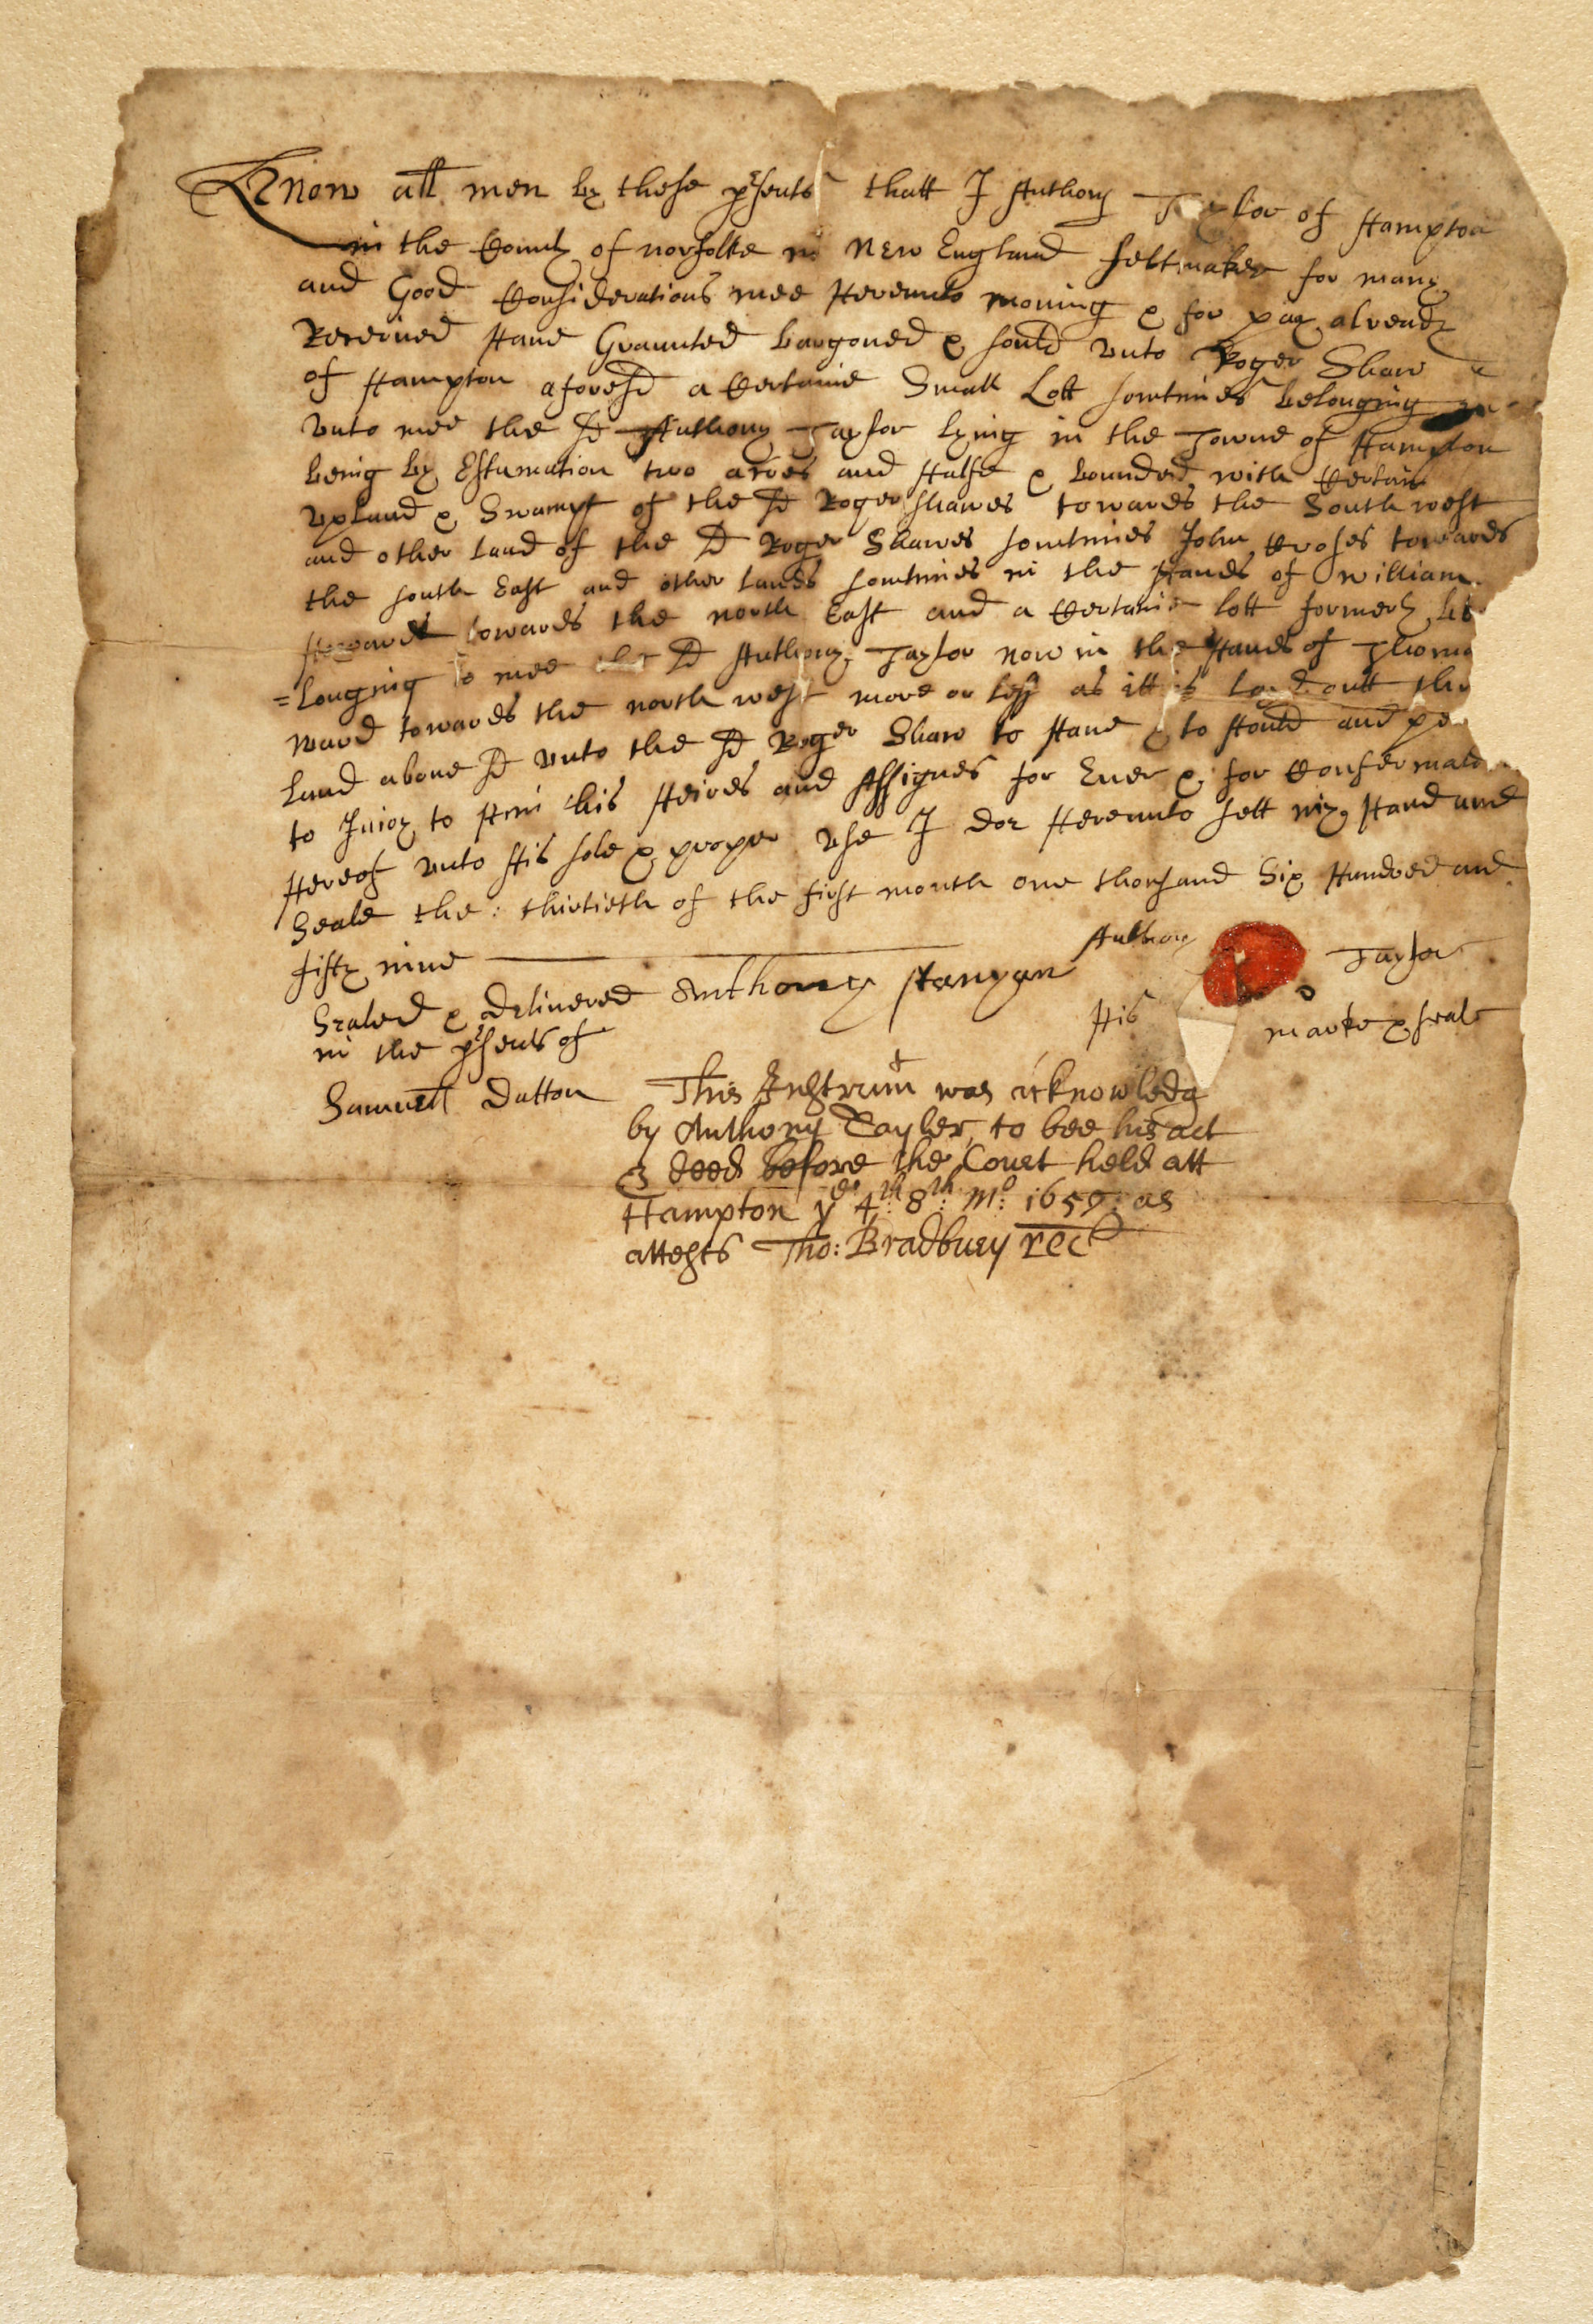 Know all men by these prsents thatt I Anthony Taylor of Hampton
in the County of norfolke in New England feltmaker for many
and Good Considerations mee Hereunto moving & for pay already
Received Have Graunted bargoned & sould unto Roger Shaw
of Hampton aforesd a Certaine Small Lott somtimes belonging
unto mee the sd Anthony Taylor lying in the Towne of Hampton
being by Estimation two acres and Halfe & bounded with Certain
upland & Swampe of the sd Roger Shawes towards the South west
and other land of the sd Roger Shawes somtimes John Croses towards
the south East and other lands somtimes in the Hands of william
towards the north East and a Certaine lott formerly be
=longing to mee the sd Anthony Taylor now in the Hands of Thoma
ward towards the north west more or less as itt is layd outt the
land above sd unto the sd Roger Shaw to Have & to Hould and pe
to Injoy to Him his Heires and Assignes for Ever & for Confermatio
Hereof unto His sole & proper use I doe Hereunto sett my Hand and
Seale the: thirtieth of the first month one thousand Six Hundred and
fifty nine
Anthony Taylor
His marke & seale
Sealed & Delivered
in the prsents of
Anthony Stanyan
Samuell Dutton
This Instrumt was acknowledg
by Anthony Tayler, to bee his act
& deed before the Court held att
Hampton ye 4th: 8th: Mo: 1659: as
attests Tho: Bradbury rec